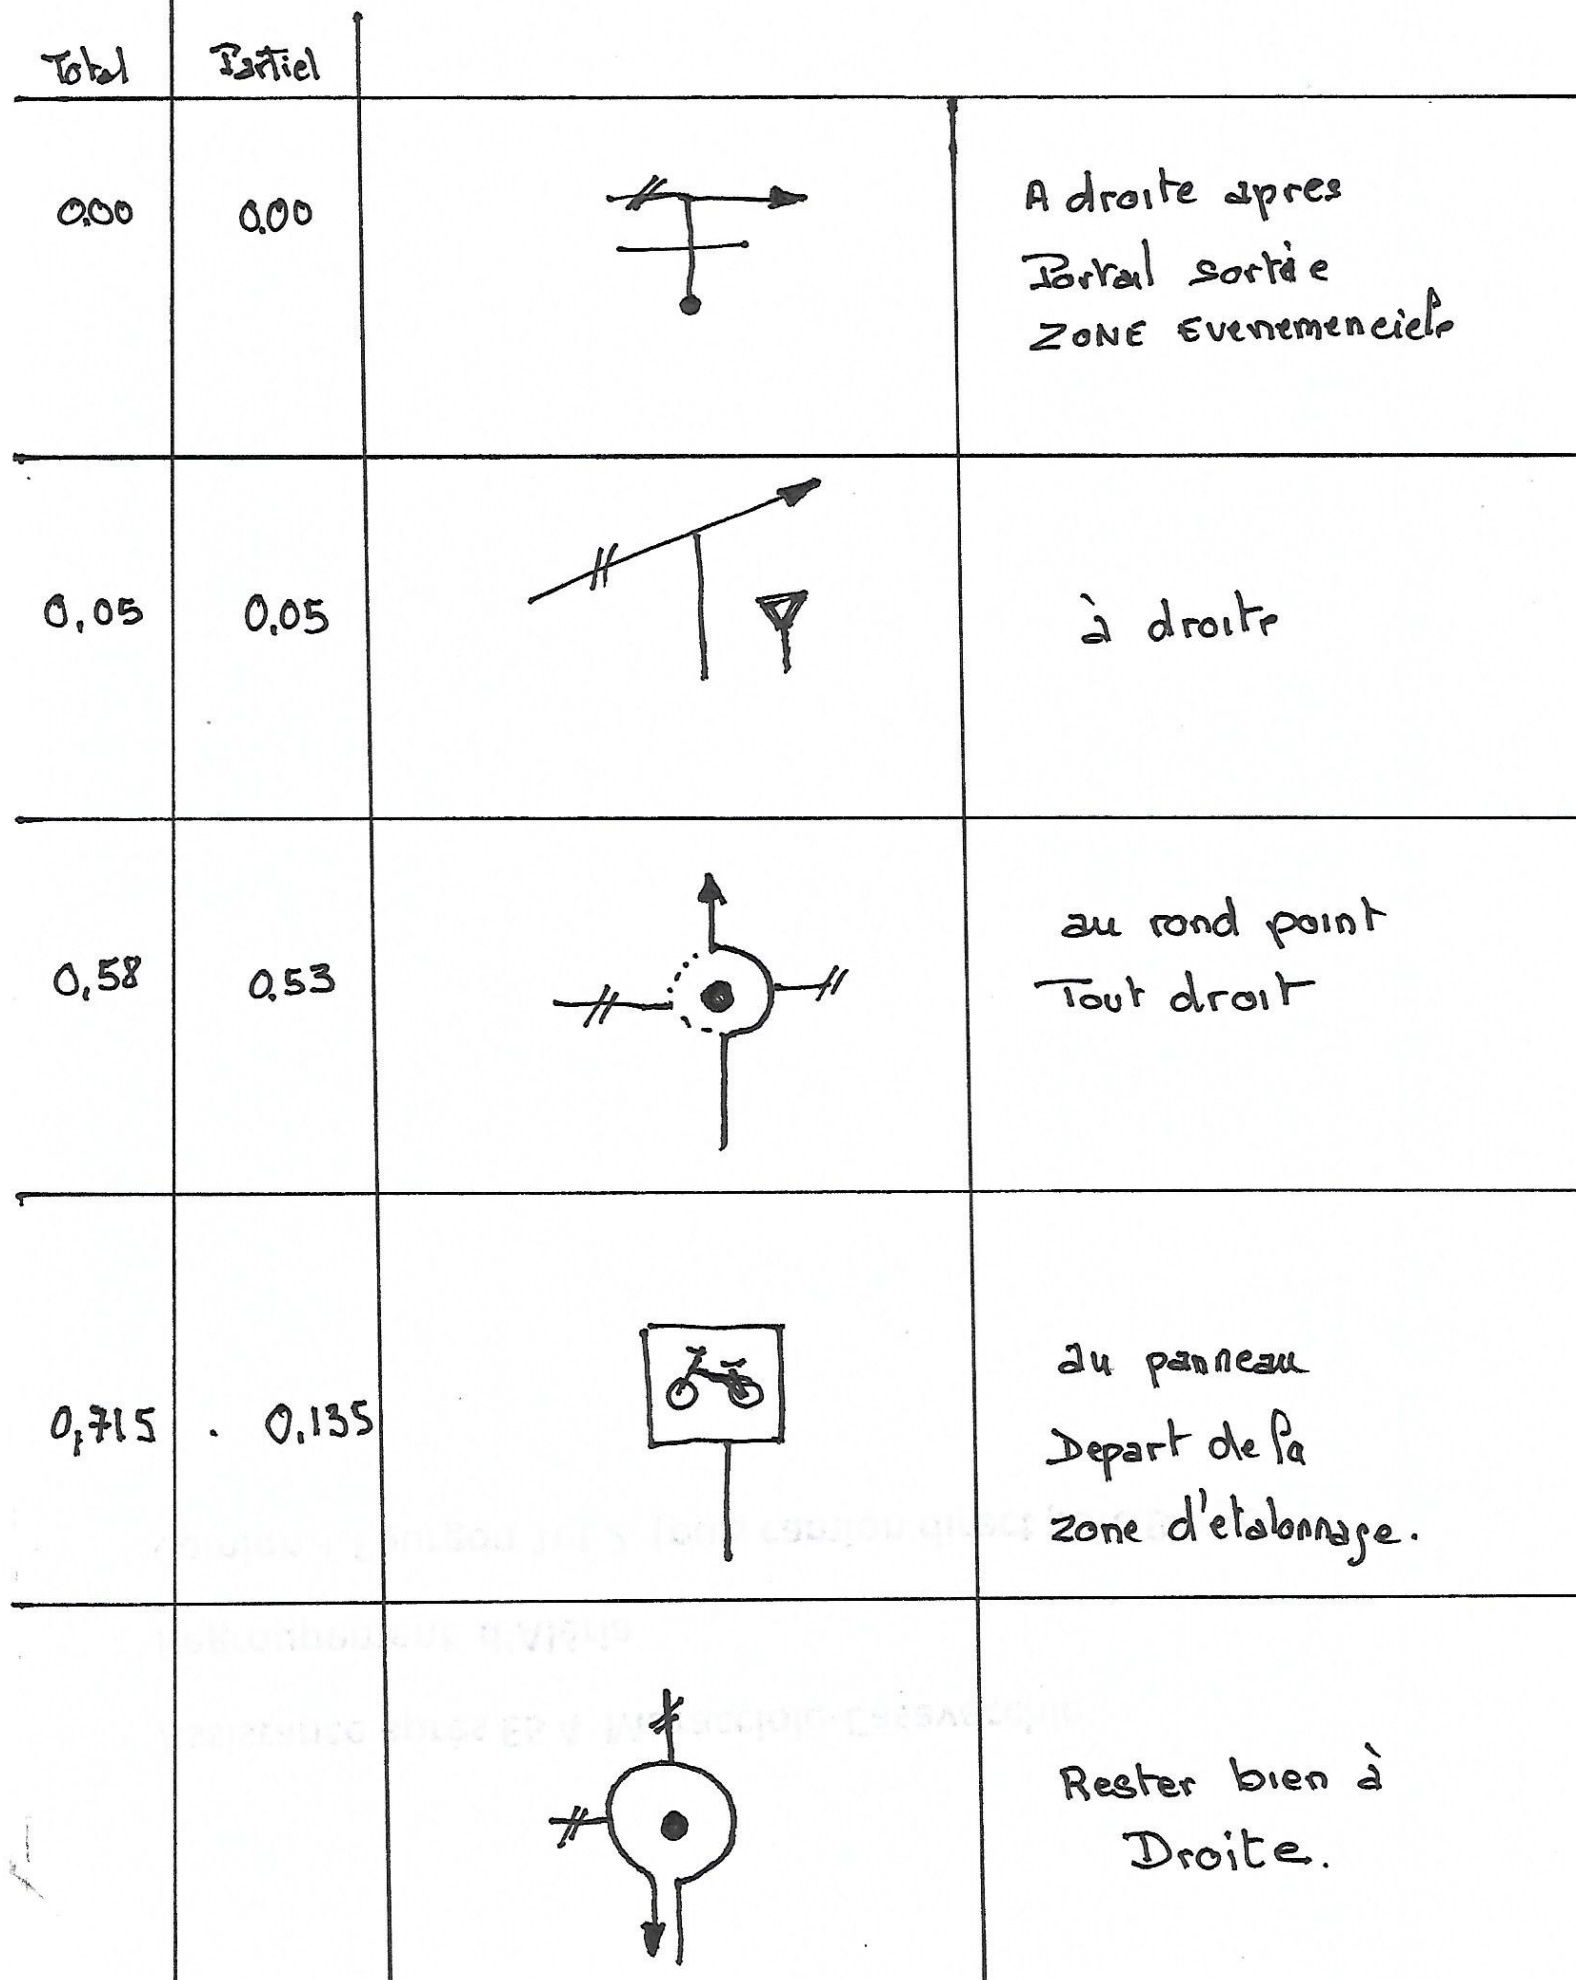 Total Partiel
0.00 0.00 A droite apres
Portail sortie
ZONE Evenementiele
0,05 0.05 à droite
0,58 0.53 au rond point
Tout droit
0,715 0,135 au panneau
Depart de la
zone d'etalonnage.
Rester bien à
Droite.